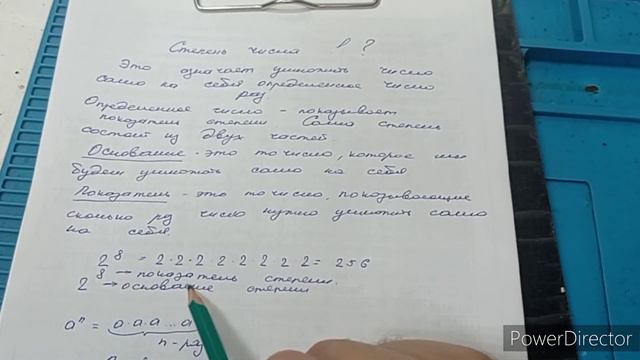 Степень числа ?
Это означает умножить число
само на себя определенное число
раз.
Определенное число - показывает
показатель степени Сама степень
состоит из двух частей
Основание - это то число, которое мы
будем умножать само на себя
Показатель - это то число, показывающие
сколько раз число нужно умножить само
на себя
2⁸ = 2·2·2·2·2·2·2·2 = 256
8 → показатель степени.
2 → основание степени
aⁿ = a·a·a...a
n-раз
PowerDirector